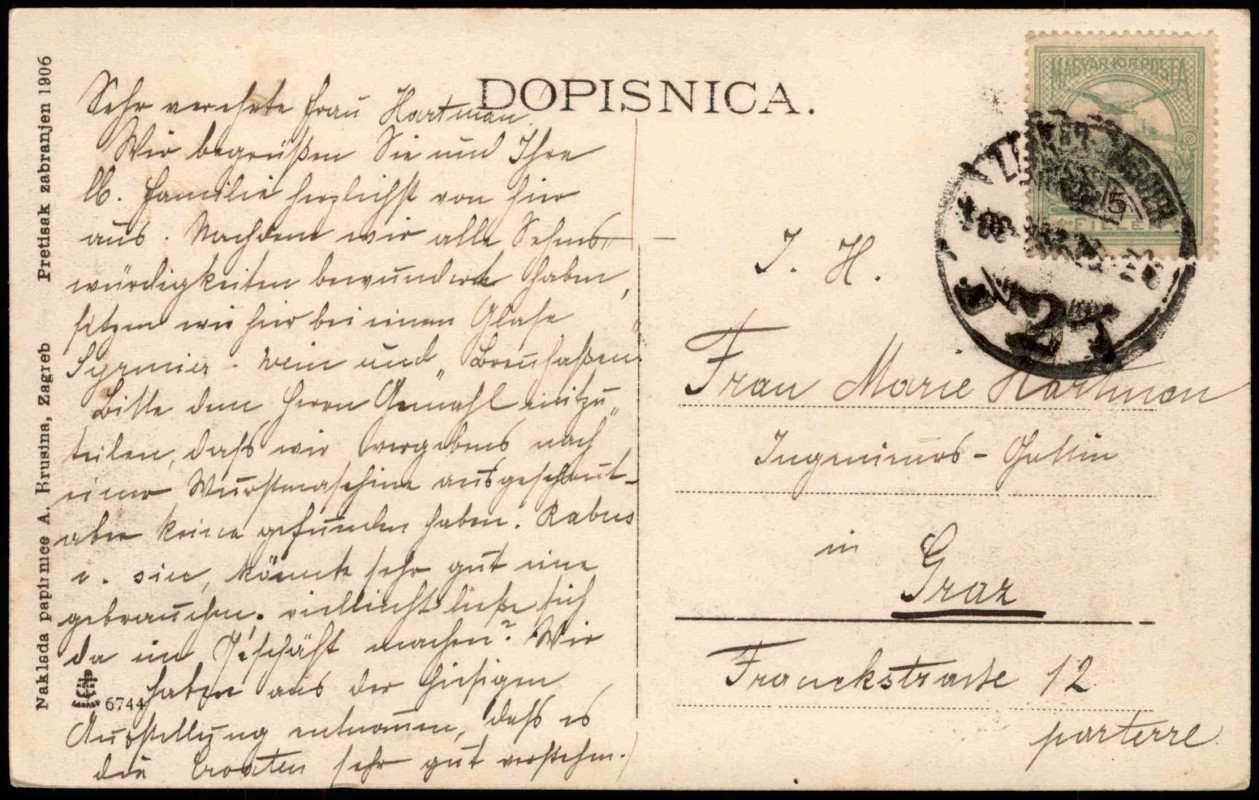 DOPISNICA.
Sehr verehrte Frau Hartman
Wir begrüßen Sie und Ihre
lb. Familie herzlichst von hier
aus. Nachdem wir alle Sehens-
würdigkeiten bewundert haben,
sitzen wir hier bei einem Glase
Syrmier-Wein und
Bitte dem Herrn Gemahl mitzu-
teilen, daß wir vergebens nach
einer Wurstmaschine ausgeschaut
aber keine gefunden haben.
könnte sehr gut eine
gebrauchen, vielleicht ließe sich
da ein Geschäft machen? Wir
haben aus der hiesigen
Ausstellung entnommen, daß es
die Croaten sehr gut verstehn.
Naklada papirnice A. Brusina, Zagreb Pretisak zabranjen 1906
6744
MAGYAR KIR. POSTA
J. H.
Frau Marie Hartman
Ingenieurs-Gattin
in Graz
Franckstraße 12
parterre